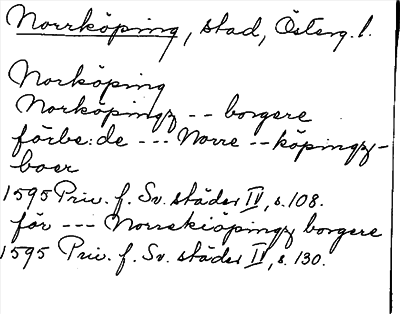 Norrköping, stad, Österg. l.
Norköping
Norköpingz -- borgere
förbe:de --- Norre --köpingz-
boer
1595 Priv. f. Sv. städer IV, s. 108.
för --- Norrekiöpingz borgere
1595 Priv. f. Sv. städer IV, s. 130.